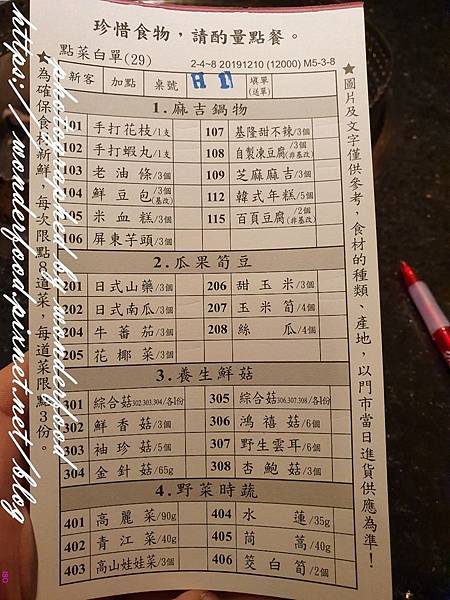 珍惜食物，請酌量點餐。
點菜白單(29)
2-4~8 20191210 (12000) M5-3-8
新客 加點 桌號 H1 填單(送單)
1.麻吉鍋物
101 手打花枝/1支 107 基隆甜不辣/3個
102 手打蝦丸/1支 108 自製凍豆腐/3個(非基改)
103 老油條/3個 109 芝麻麻吉/3個
104 鮮豆包/3個(基改) 112 韓式年糕/5個
105 米血糕/3個 115 百頁豆腐/2個(非基改)
106 屏東芋頭/3個
2.瓜果筍豆
201 日式山藥/3個 206 甜玉米/3個
202 日式南瓜/3個 207 玉米筍/4個
204 牛蕃茄/3個 208 絲瓜/4個
205 花椰菜/3個
3.養生鮮菇
301 綜合菇302.303.304/各1份 305 綜合菇306.307.308/各1份
302 鮮香菇/3個 306 鴻禧菇/6個
303 袖珍菇/5個 307 野生雲耳/6個
304 金針菇/65g 308 杏鮑菇/3個
4.野菜時蔬
401 高麗菜/90g 404 水蓮/35g
402 青江菜/40g 405 茼蒿/40g
403 高山娃娃菜/3個 406 筊白筍/2個
★為確保食材新鮮，每次限點8道菜，每道菜限點3份。
★圖片及文字僅供參考，食材的種類、產地，以門市當日進貨供應為準！
photo copied by wonderfood
https://wonderfood.pixnet.net/blog
ISO